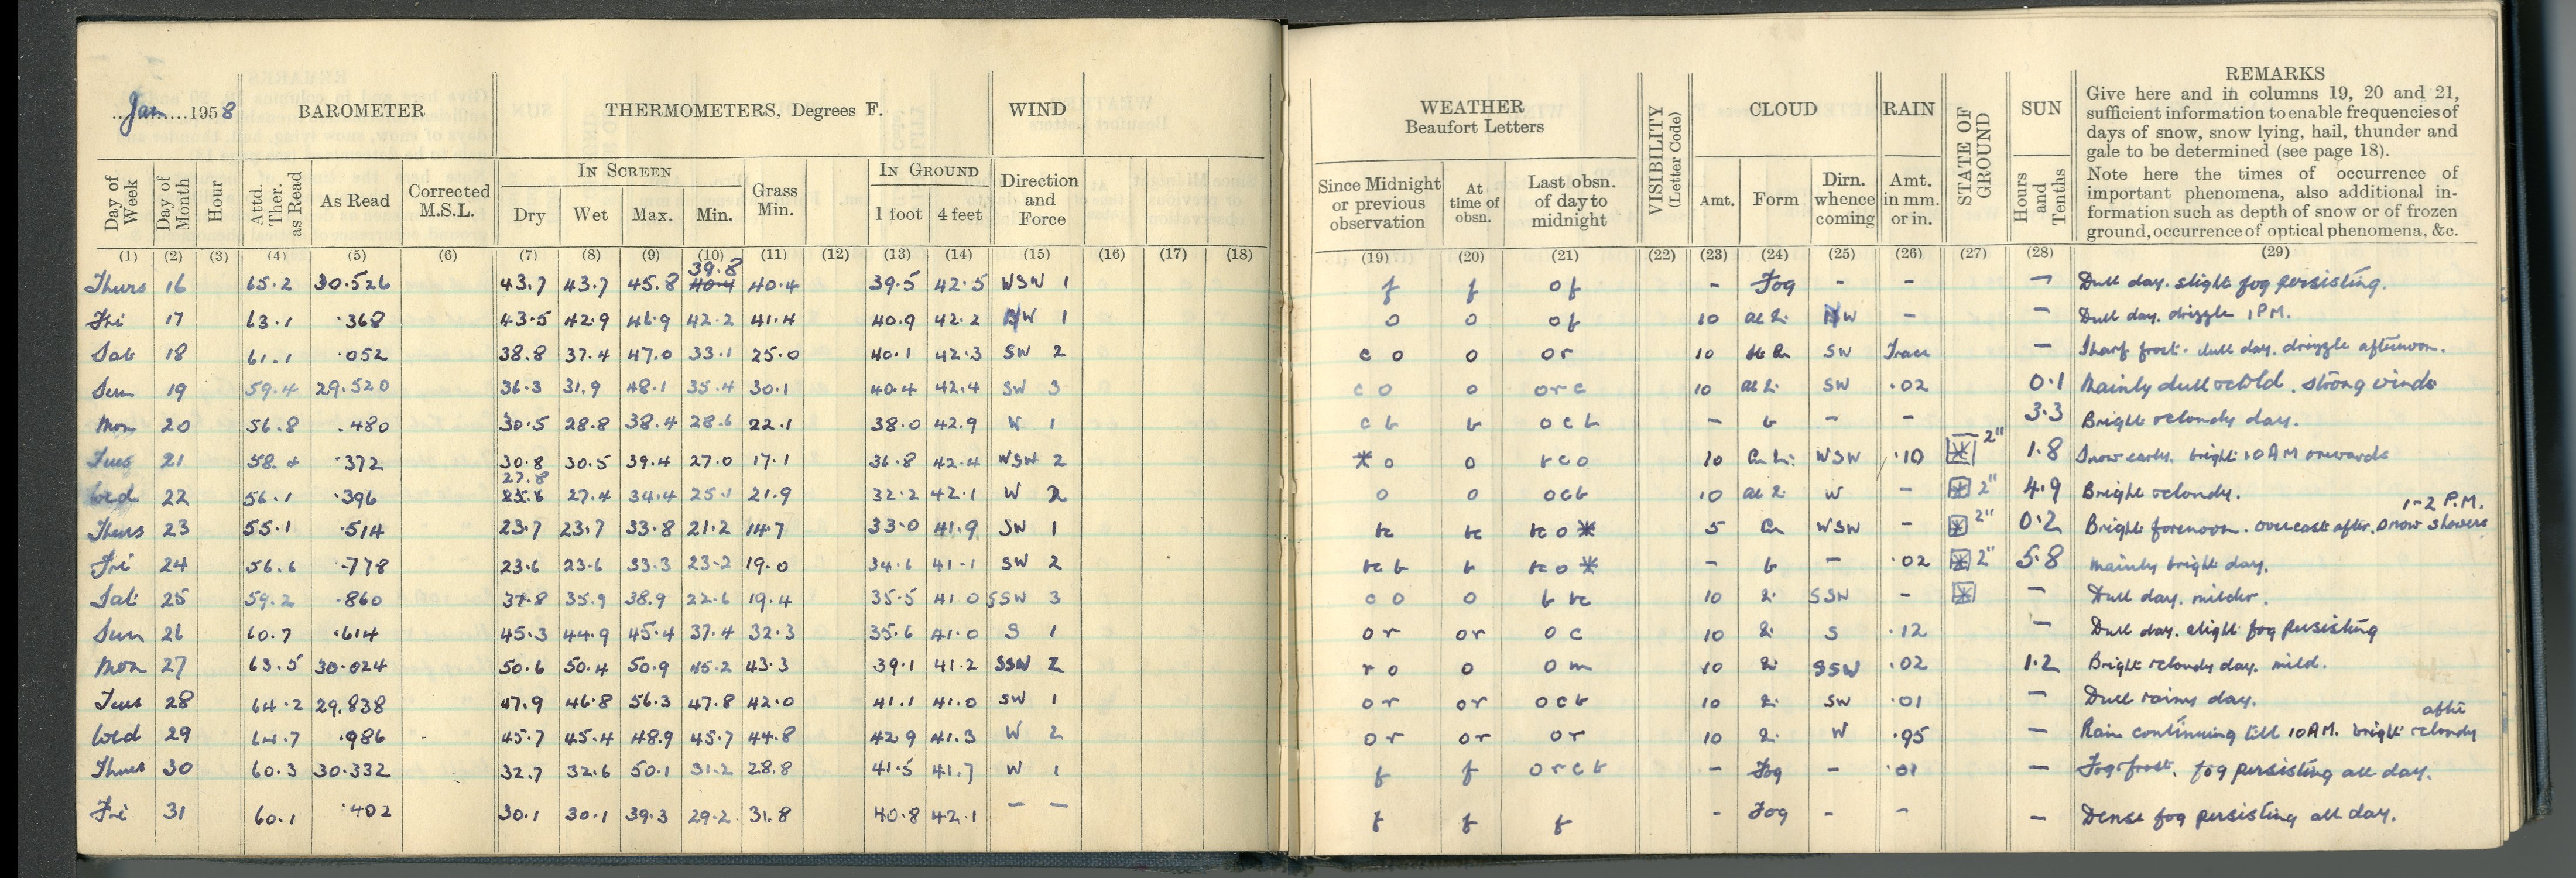 Jan 1958 BAROMETER THERMOMETERS, Degrees F. WIND
Day of Week Day of Month Hour Attd. Ther. as Read As Read Corrected M.S.L. IN SCREEN Dry Wet Max. Min. Grass Min. IN GROUND 1 foot 4 feet Direction and Force
(1) (2) (3) (4) (5) (6) (7) (8) (9) (10) (11) (12) (13) (14) (15) (16) (17) (18)
39.8
Thurs 16 65.2 30.526 43.7 43.7 45.8 40.4 40.4 39.5 42.5 WSW 1
Fri 17 63.1 .368 43.5 42.9 46.9 42.2 41.4 40.9 42.2 W 1
Sat 18 61.1 .052 38.8 37.4 47.0 33.1 25.0 40.1 42.3 SW 2
Sun 19 59.4 29.520 36.3 31.9 48.1 35.4 30.1 40.4 42.4 SW 3
Mon 20 56.8 .480 30.5 28.8 38.4 28.6 22.1 38.0 42.9 W 1
Tues 21 58.4 .372 30.8 30.5 39.4 27.0 17.1 36.8 42.4 WSW 2
27.8
Wed 22 56.1 .396 27.4 34.4 25.1 21.9 32.2 42.1 W 2
Thurs 23 55.1 .514 23.7 23.7 33.8 21.2 14.7 33.0 41.9 SW 1
Fri 24 56.6 .778 23.6 23.6 33.3 23.2 19.0 34.6 41.1 SW 2
Sat 25 59.2 .860 37.8 35.9 38.9 22.6 19.4 35.5 41.0 SSW 3
Sun 26 60.7 .614 45.3 44.9 45.4 37.4 32.3 35.6 41.0 S 1
Mon 27 63.5 30.024 50.6 50.4 50.9 45.2 43.3 39.1 41.2 SSW 2
Tues 28 64.2 29.838 47.9 46.8 56.3 47.8 42.0 41.1 41.0 SW 1
Wed 29 64.7 .986 45.7 45.4 48.9 45.7 44.8 42.9 41.3 W 2
Thurs 30 60.3 30.332 32.7 32.6 50.1 31.2 28.8 41.5 41.7 W 1
Fri 31 60.1 .402 30.1 30.1 39.3 29.2 31.8 40.8 42.1 — —
WEATHER Beaufort Letters VISIBILITY (Letter Code) CLOUD RAIN STATE OF GROUND SUN REMARKS
Give here and in columns 19, 20 and 21,
sufficient information to enable frequencies of
days of snow, snow lying, hail, thunder and
gale to be determined (see page 18).
Note here the times of occurrence of
important phenomena, also additional in-
formation such as depth of snow or of frozen
ground, occurrence of optical phenomena, &c.
Since Midnight or previous observation At time of obsn. Last obsn. of day to midnight Amt. Form Dirn. whence coming Amt. in mm. or in. Hours and Tenths
(19) (20) (21) (22) (23) (24) (25) (26) (27) (28) (29)
f f of - Fog - - — Dull day. slight fog persisting.
o o of 10 W - — Dull day. drizzle 1PM.
c o o or 10 SW Trace — Sharp frost. dull day. drizzle afternoon.
c o o orc 10 SW .02 0.1 Mainly dull & cold. strong winds
c b b ocb - b - - 3.3 Bright & cloudy day.
* o o bco 10 WSW .10 * 2" 1.8 Snow early. bright 10AM onwards
o o ocb 10 W - * 2" 4.9 Bright & cloudy.
1-2 P.M.
bc bc bc o * 5 Cu WSW - * 2" 0.2 Bright forenoon. overcast after. snow showers
bc b b bc o * - b - .02 * 2" 5.8 Mainly bright day.
c o o b bc 10 SSW - * — Dull day. milder.
or or oc 10 S .12 — Dull day. slight fog persisting
r o o om 10 SSW .02 1.2 Bright & cloudy day. mild.
or or ocb 10 SW .01 — Dull rainy day.
after
or or or 10 W .95 — Rain continuing till 10AM. bright & cloudy
f f orcb - Fog - .01 — Fog & frost. fog persisting all day.
f f f - Fog - - — Dense fog persisting all day.